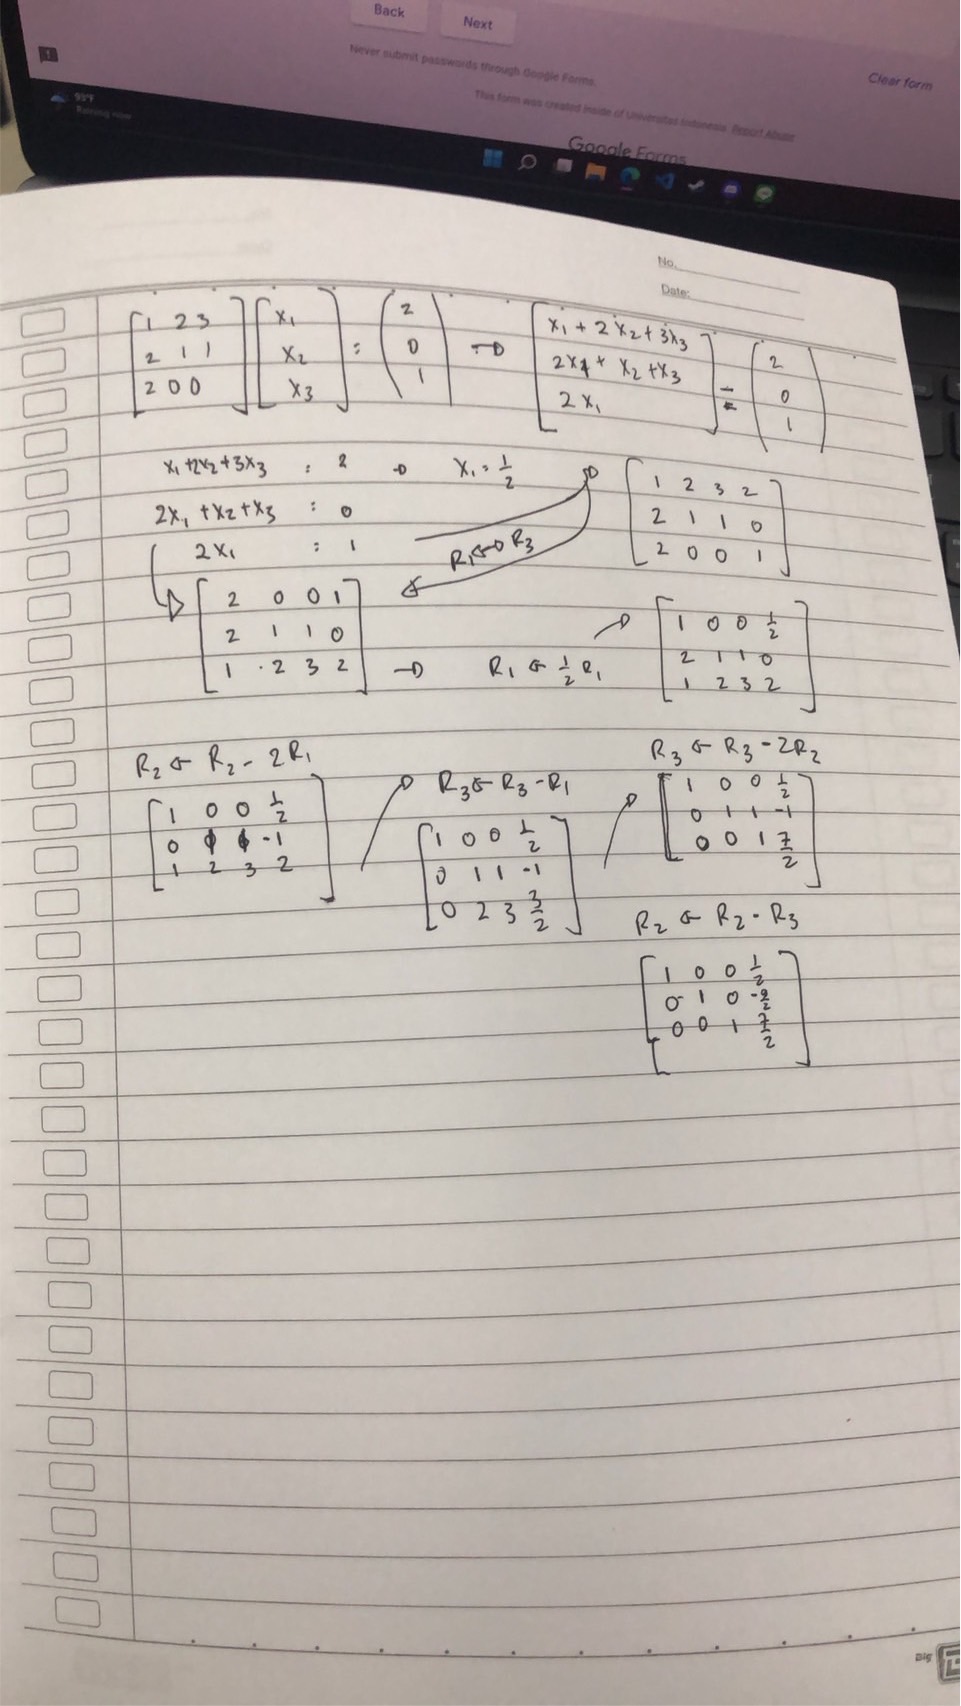 Back Next
Never submit passwords through Google Forms.
Clear form
This form was created inside of Universitas Indonesia. Report Abuse
Google Forms
No.
Date:
[1 2 3] [x₁] : (2) → [x₁ + 2x₂ + 3x₃] = (2)
[2 1 1] [x₂] (0) [2x₁ + x₂ + x₃] (0)
[2 0 0] [x₃] (1) [2x₁] (1)
x₁ + 2x₂ + 3x₃ : 2 → x₁ = 1/2
2x₁ + x₂ + x₃ : 0
2x₁ : 1
[1 2 3 2]
[2 1 1 0]
[2 0 0 1]
R₁ ↔ R₃
[2 0 0 1]
[2 1 1 0]
[1 2 3 2] → R₁ ← 1/2 R₁
[1 0 0 1/2]
[2 1 1 0]
[1 2 3 2]
R₂ ← R₂ - 2R₁
[1 0 0 1/2]
[0 1 1 -1]
[1 2 3 2]
R₃ ← R₃ - R₁
[1 0 0 1/2]
[0 1 1 -1]
[0 2 3 3/2]
R₃ ← R₃ - 2R₂
[1 0 0 1/2]
[0 1 1 -1]
[0 0 1 7/2]
R₂ ← R₂ - R₃
[1 0 0 1/2]
[0 1 0 -9/2]
[0 0 1 7/2]
Big